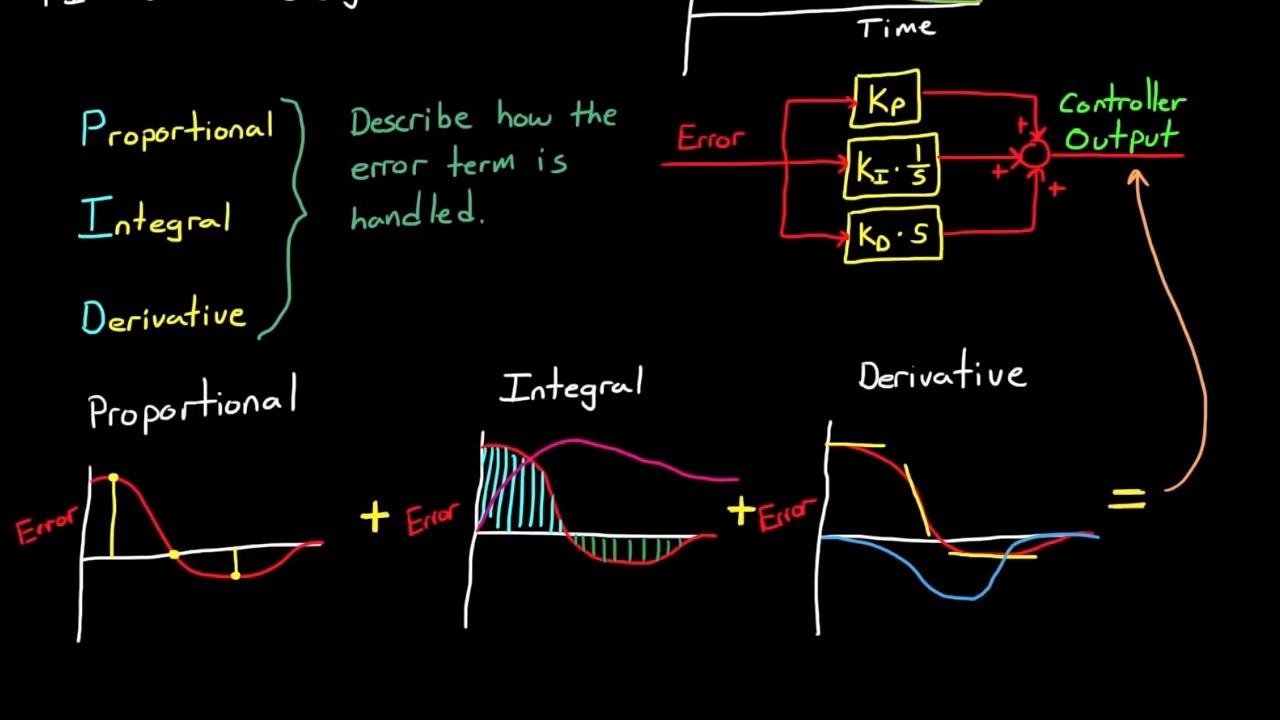 Time
Proportional
Integral
Derivative
Describe how the
error term is
handled.
Error
KP
KI · 1/s
KD · S
+
+
+
Controller
Output
Proportional
Integral
Derivative
Error
+
Error
+
Error
=